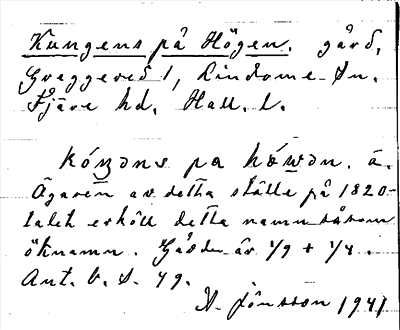 Kungens på Högen. gård,
Greggered 1, Lindome sn.
Fjäre hd. Hall. l.
kóŋəns pa hǿwən. ä.
Ägaren av detta ställe på 1820-
talet erhöll detta namn såsom
öknamn. Gården är 1/9 + 1/4.
Ant. b. s. 49.
A. Jönsson 1941